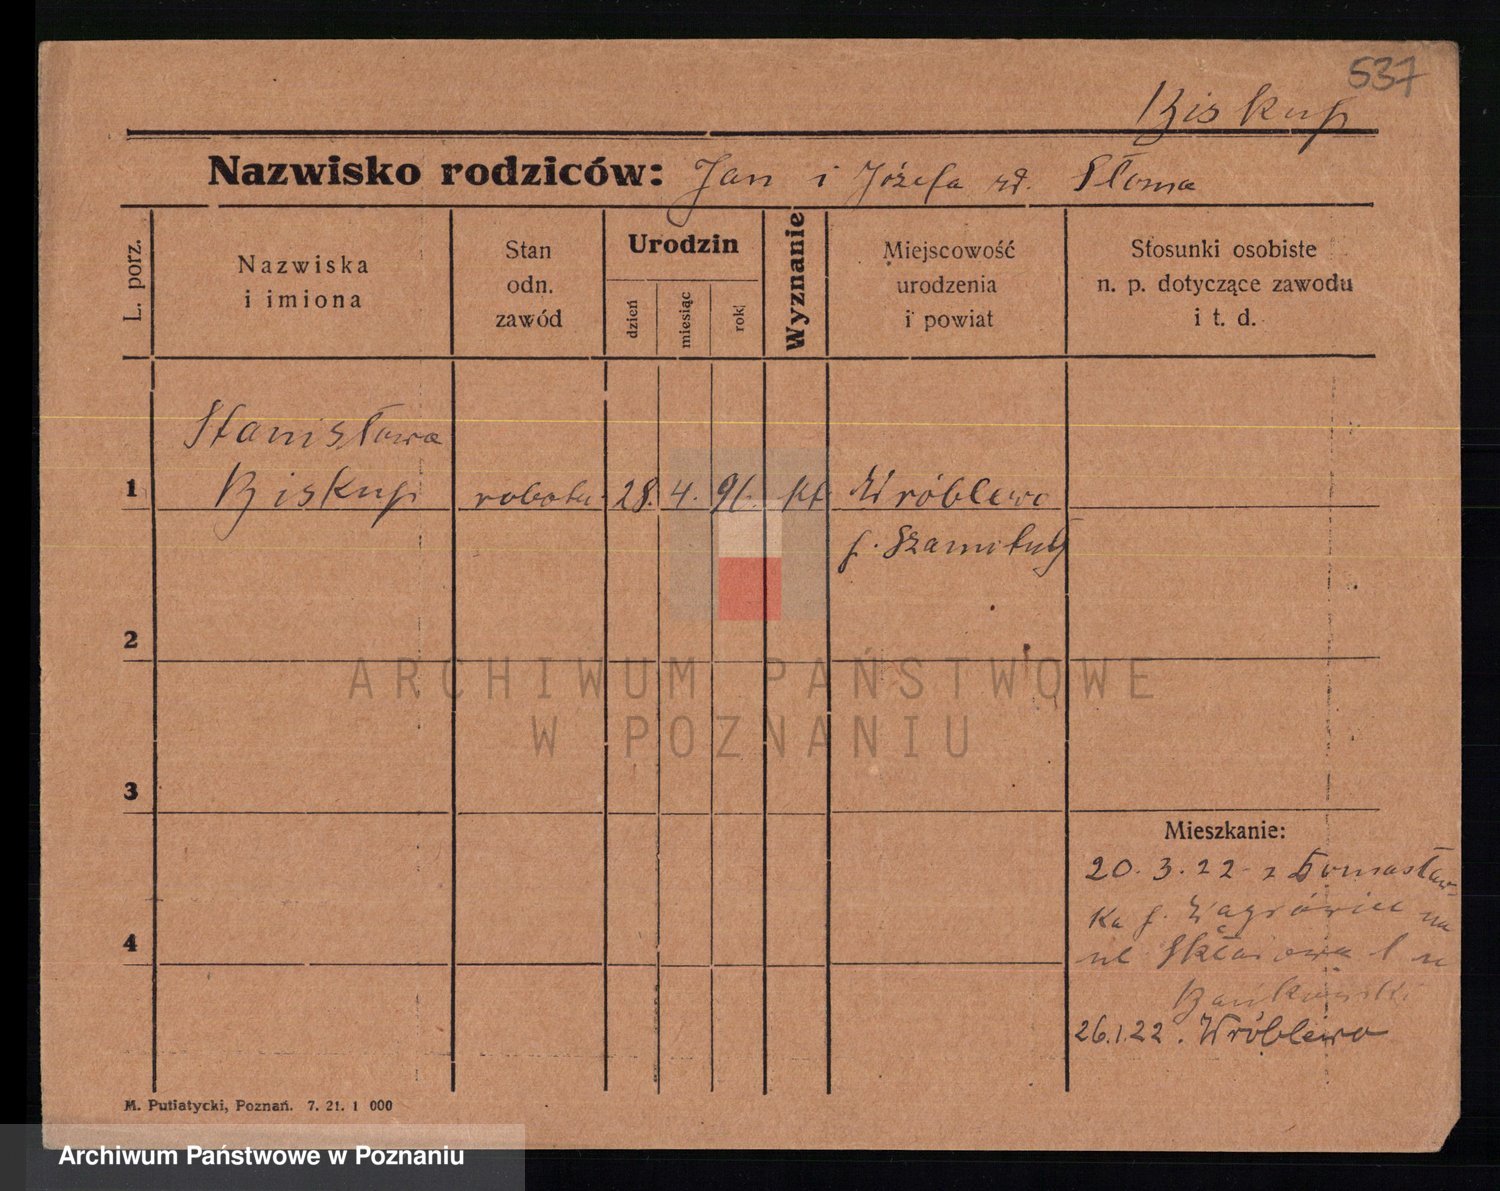 537
Biskup
Nazwisko rodziców: Jan i Józefa rd. Słoma
L. porz.
Nazwiska
i imiona
Stan
odn.
zawód
Urodzin
dzień
miesiąc
rok
Wyznanie
Miejscowość
urodzenia
i powiat
Stosunki osobiste
n. p. dotyczące zawodu
i t. d.
Stanisława
1 Biskup robotn. 28. 4. 91. kt. Wróblewo
p. Szamotuły
2
ARCHIWUM PAŃSTWOWE
W POZNANIU
3
Mieszkanie:
20.3.22 z Tomasław-
ka p. Wągrówiec na
4
ul Skłasowa 1 u
Bankowski
26.1.22. Wróblewo
M. Putiatycki, Poznań. 7. 21. 1 000
Archiwum Państwowe w Poznaniu